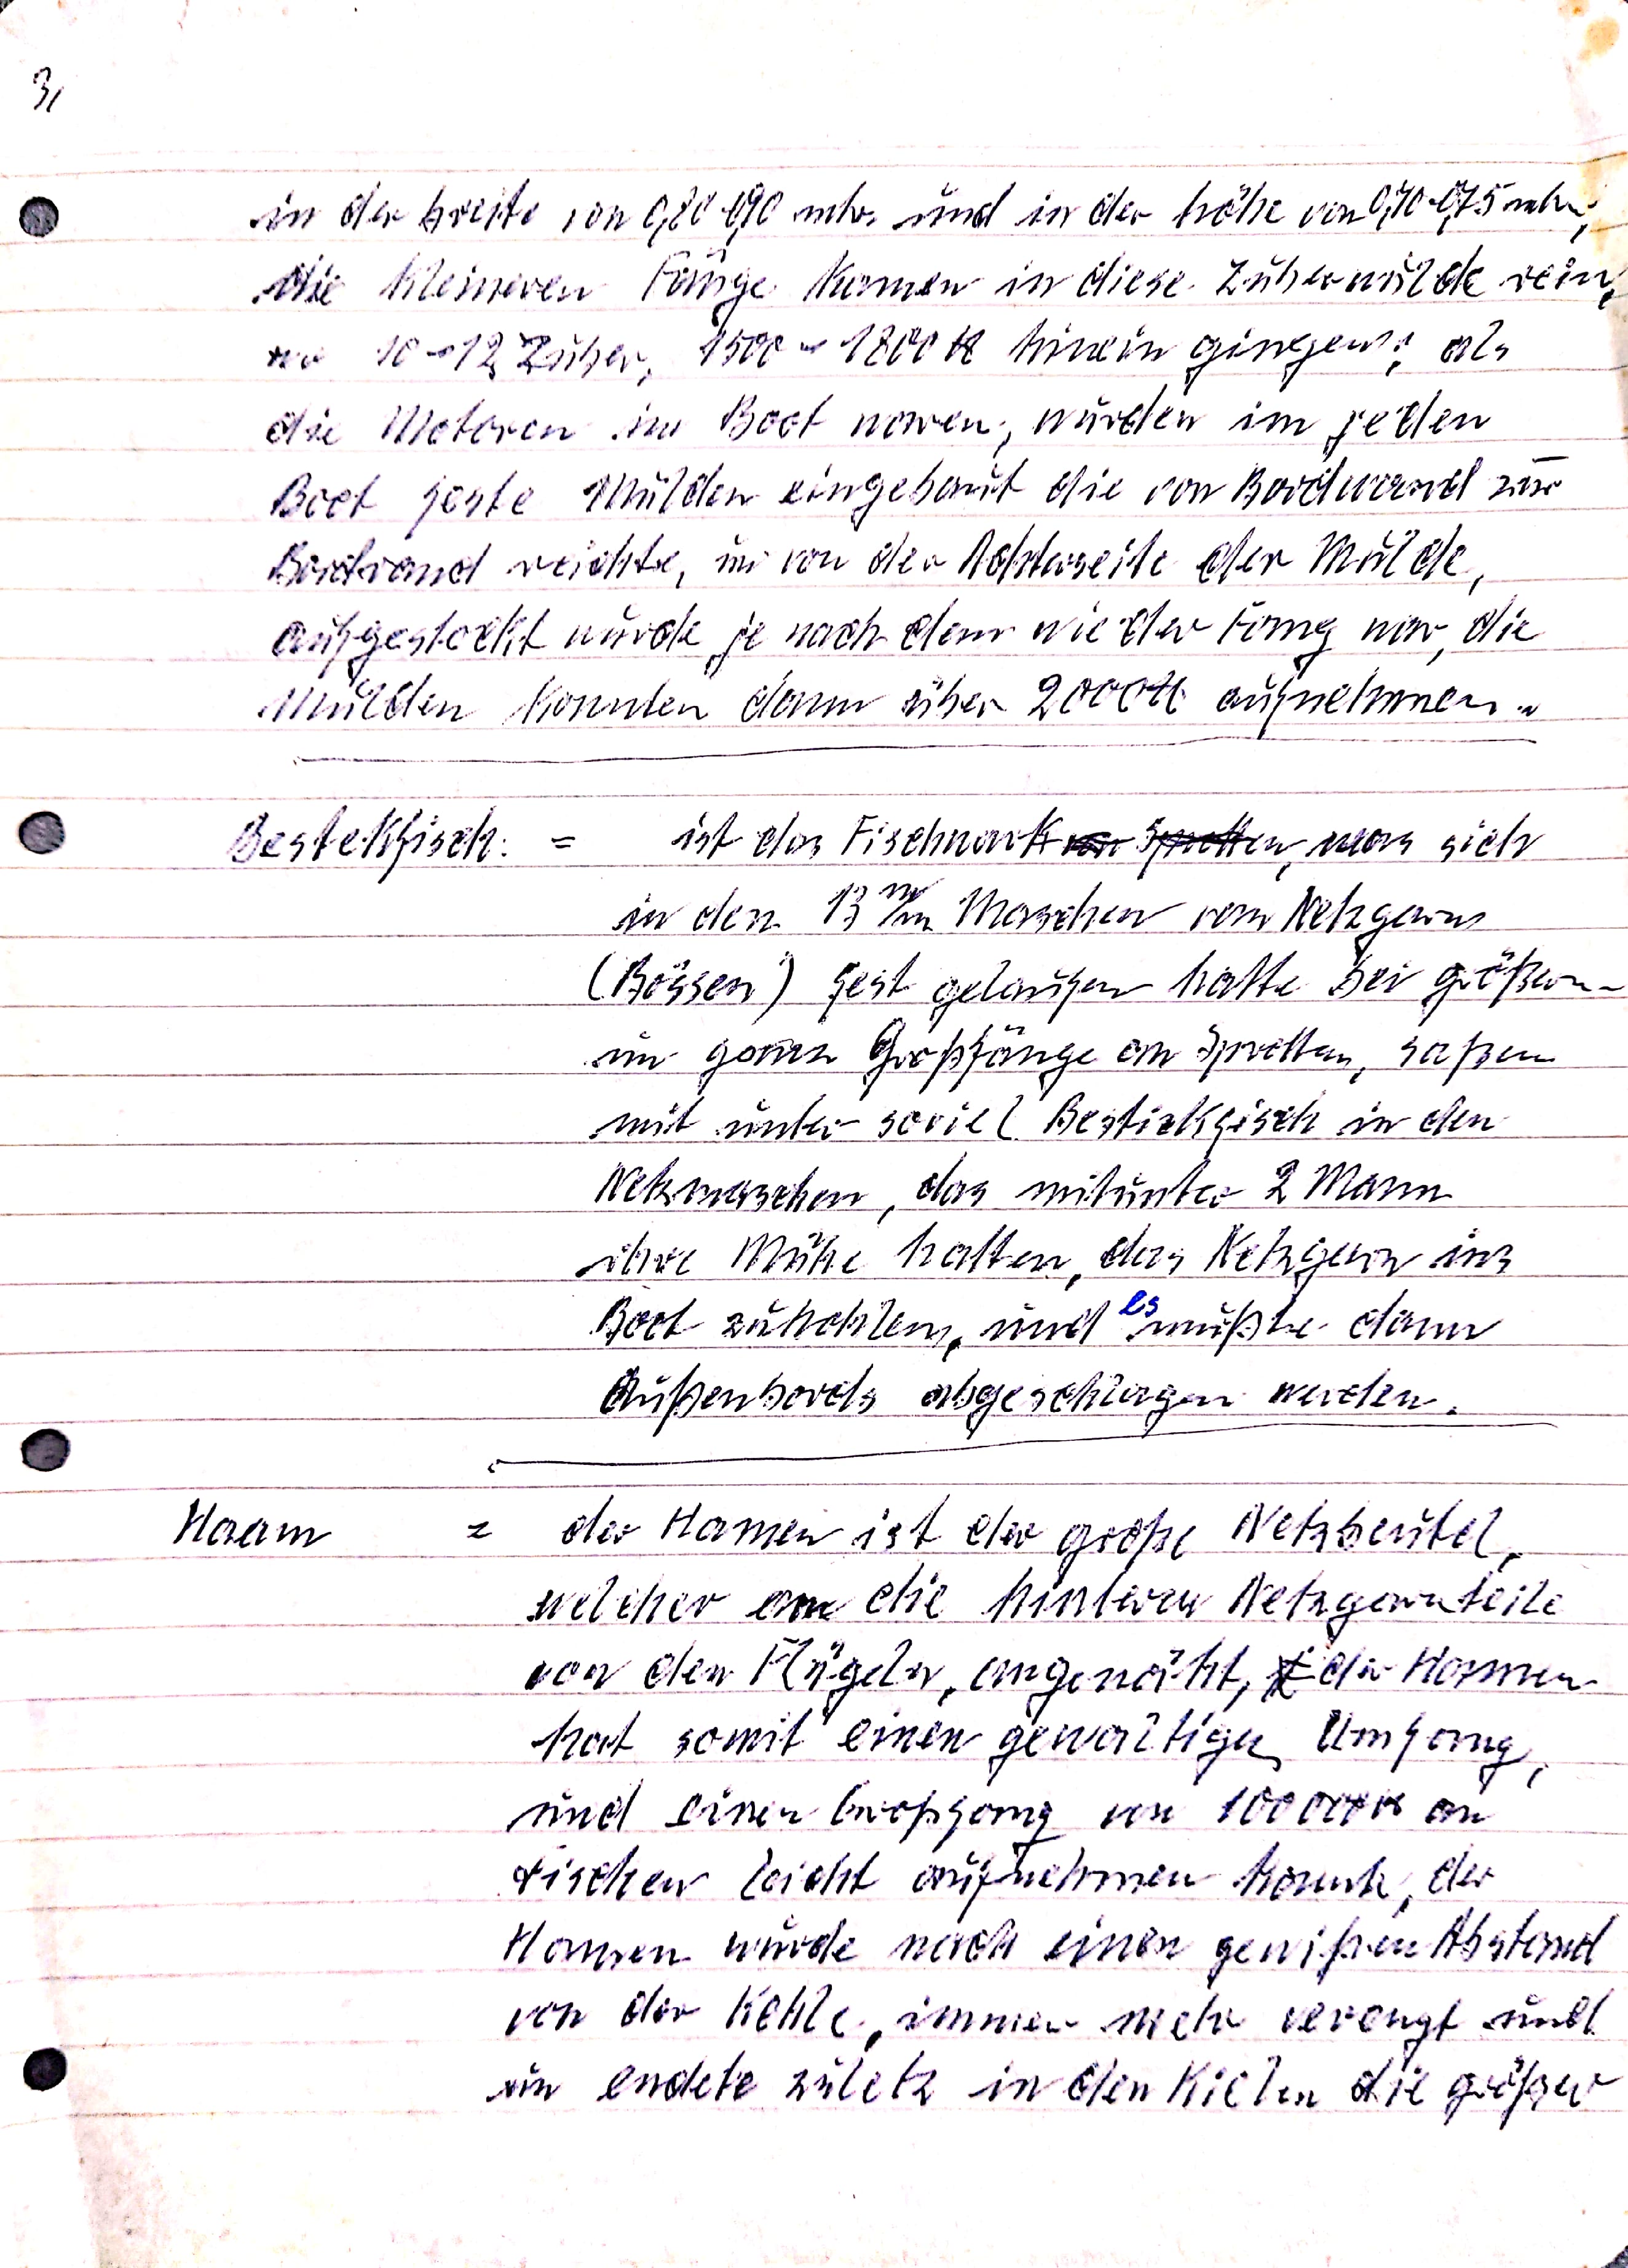 3,
in der breite von 0,80-0,90 mtr. und in der höhe von 0,70-0,75 mtr.,
die kleineren Fänge kamen in diese Zubermulde rein,
wo 10-12 Zuber, 1500 - 1800 ℔ hinein gingen; als
die Motoren im Boot waren, wurden im jeden
Boot feste Mulden eingebaut die von Bordwand zur
Bordwand reichte, un von der Achterseite der Mulde,
aufgestockt wurde je nach dem wie der Fang war, die
Mulden konnten dann über 2000 ℔ aufnehmen.
Bestekfisch: = ist das Fischwerk von Sprotten, was sich
in den 13 m/m Maschen vom Netzgarn
(Bössen) fest gelaufen hatte bei größern-
un ganz Großfänge an Sprotten, saßen
mit unter soviel Bestickfisch in den
Netzmaschen, das mitunter 2 Mann
ihre Mühe hatten, das Netzgarn ins
Boot zuhohlen, und es mußte dann
Außenbords abgeschlagen werden.
Haam = der Hamen ist der große Netzbeutel,
welcher an die hinteren Netzgarnteile
von den Flügeln, angenäht, der Hamen
hat somit einen gewaltigen Umfang,
und einen Großfang von 100000 ℔ an
Fischen leicht aufnehmen konnte, der
Hamen wurde nach einen gewißen Abstand
von der Kehle, immer mehr verengt und
un endete zuletz in den Kielen die größer